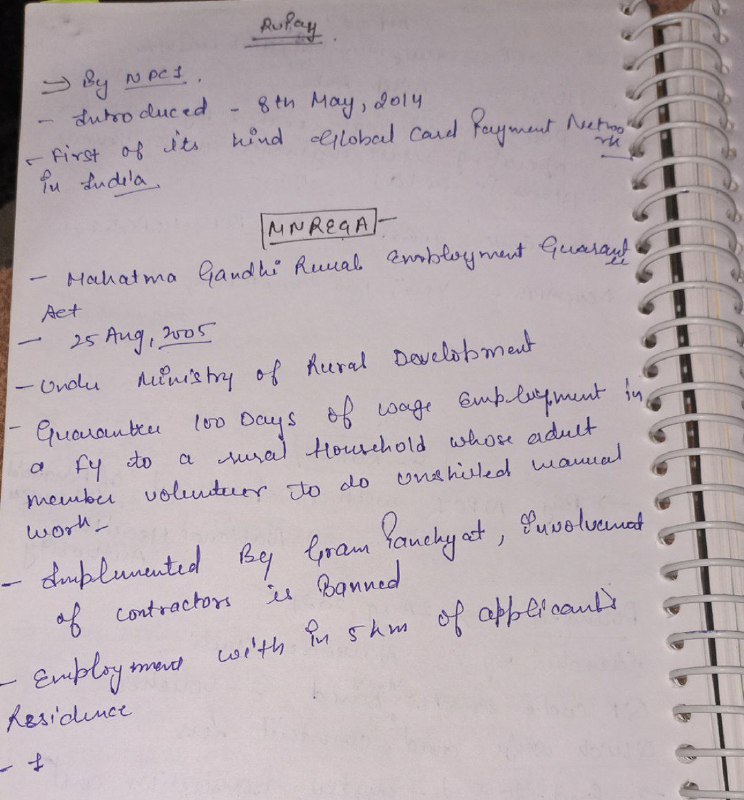 RuPay
⇒ By NPCI.
- Introduced - 8th May, 2014
- First of its kind Global Card Payment Netwo
rk
in India
MNREGA -
- Mahatma Gandhi Rural Employment Guarant
ee
Act
- 25 Aug, 2005
- Under Ministry of Rural Development
- Guarantee 100 Days of wage Employment in
a Fy to a rural Household whose adult
member volunteer to do unskilled manual
work -
- Implemented By Gram Panchyat, Involvement
of contractors is Banned
- Employment with in 5 km of applicant's
Residence
- I